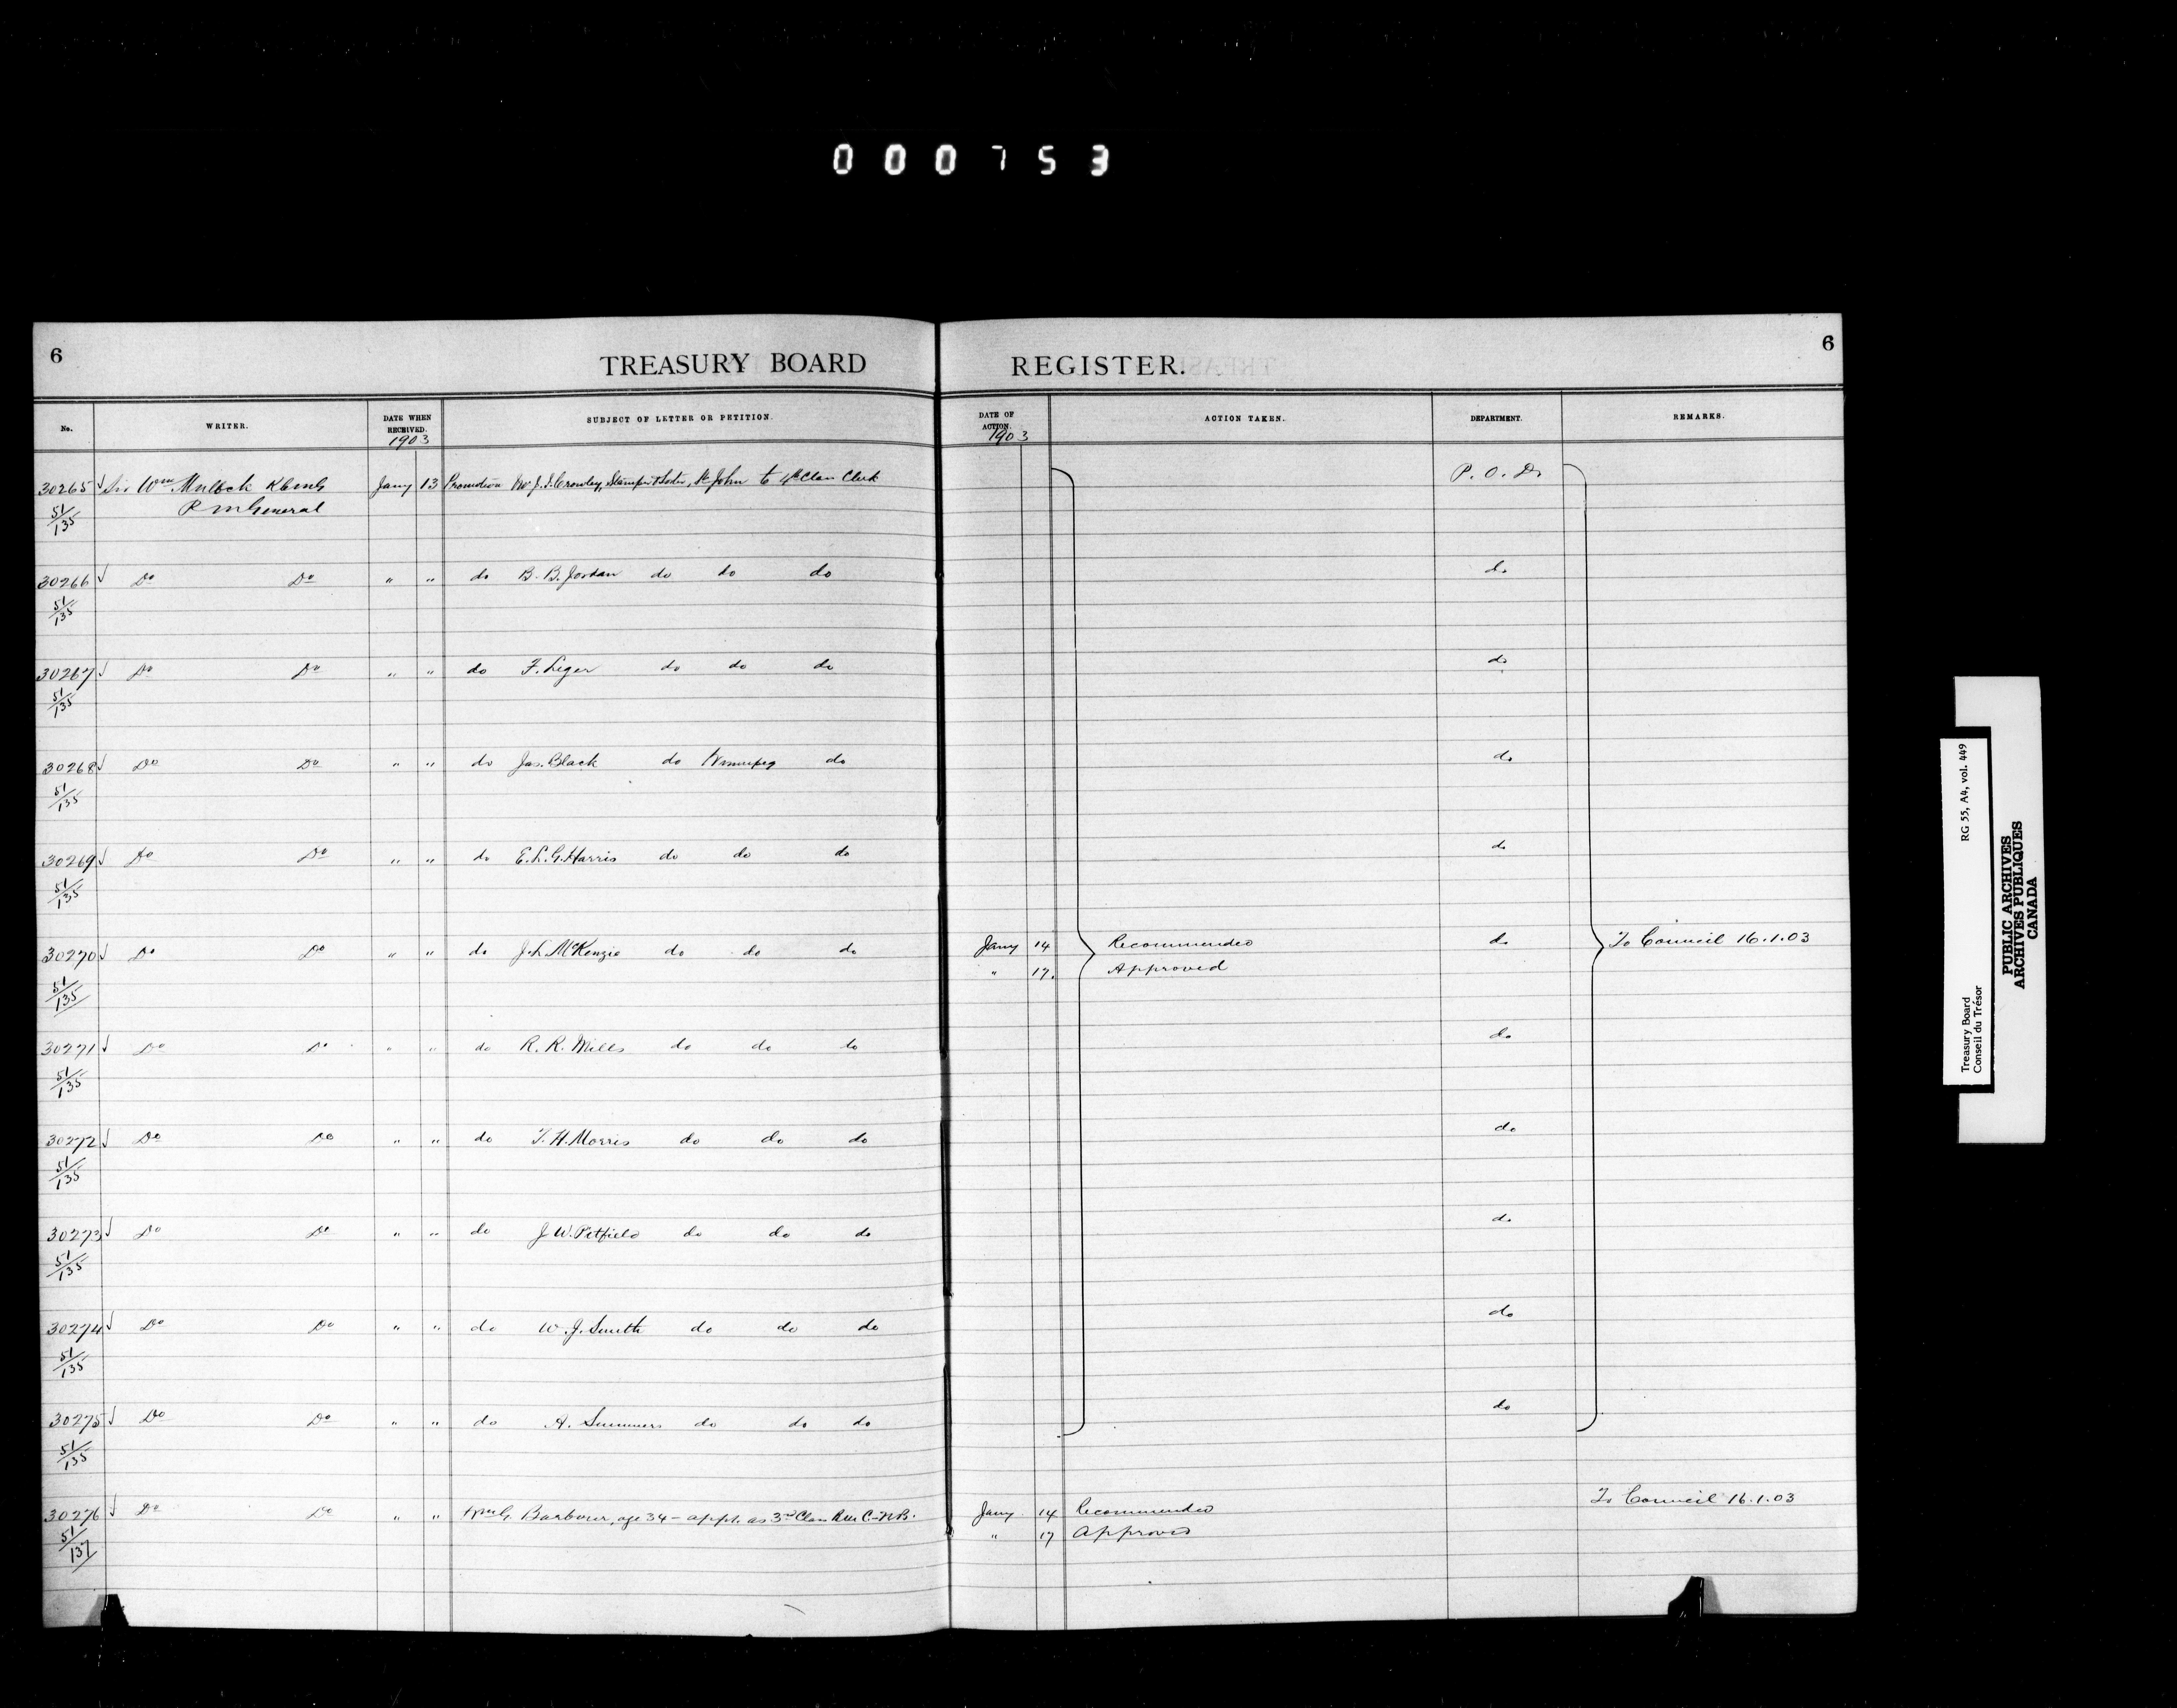 000753
6
TREASURY BOARD REGISTER.
6
No. WRITER. DATE WHEN RECEIVED. SUBJECT OF LETTER OR PETITION. DATE OF ACTION. ACTION TAKEN. DEPARTMENT. REMARKS.
1903 1903
30265 Sir Wm Mulock KCMG Jany 13 Promotion Mr J. Crowley, Stamper & Sorter, St John to 4th Class Clerk P. O. D.
51/135 P M General
30266 Do Do " " do B. B. Jordan do do do do
51/135
30267 Do Do " " do F. Leger do do do do
51/135
30268 Do Do " " do Jas. Black do Winnipeg do do
51/135
30269 Do Do " " do E. L. G. Harris do do do do
51/135
30270 Do Do " " do J. L. McKenzie do do do Jany 14 Recommended do To Council 16.1.03
51/135 " 17. Approved
30271 Do Do " " do R. R. Mills do do do do
51/135
30272 Do Do " " do T. H. Morris do do do do
51/135
30273 Do Do " " do J W. Petfield do do do do
51/135
30274 Do Do " " do W. J. Smith do do do do
51/135
30275 Do Do " " do A. Summers do do do do
51/135
30276 Do Do " " Wm G. Barbour, age 34 - appt. as 3rd Class N.B. Jany 14 Recommended To Council 16.1.03
51/137 " 17 Approved
Treasury Board RG 55, A4, vol. 449
Conseil du Trésor
PUBLIC ARCHIVES
ARCHIVES PUBLIQUES
CANADA